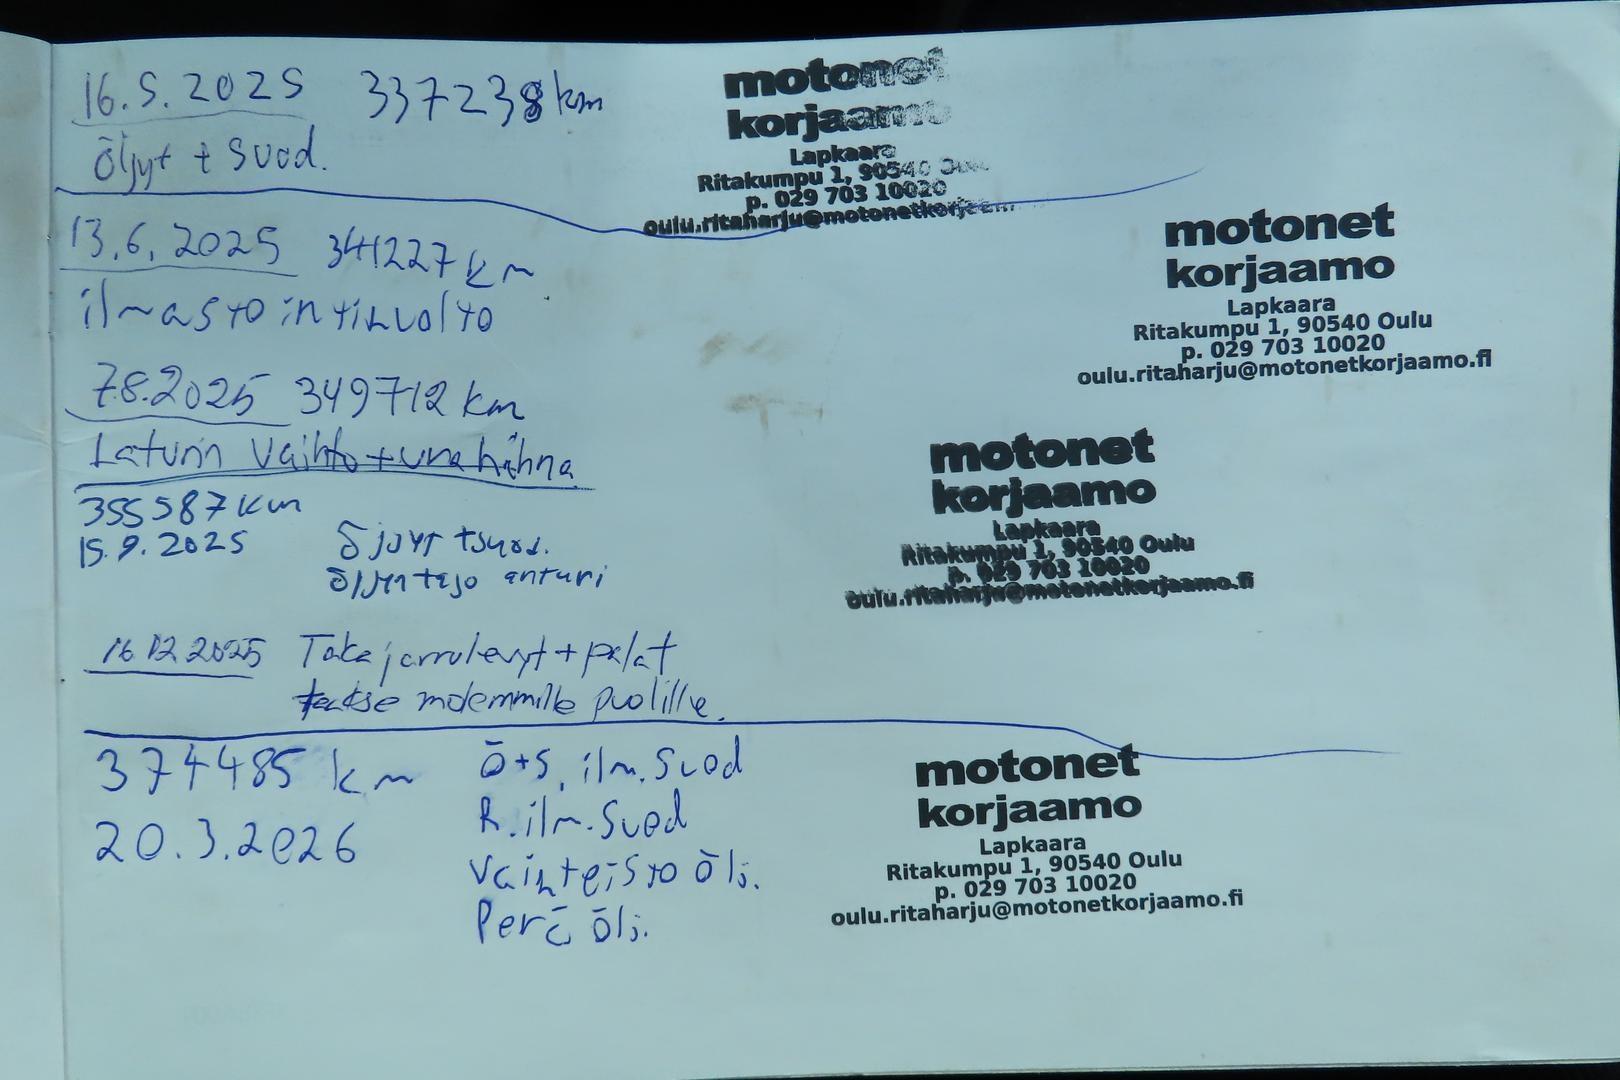 16.5.2025 337238 km
Öljyt + Suod.
motonet
korjaamo
Lapkaara
Ritakumpu 1, 90540 Oulu
p. 029 703 10020
oulu.ritaharju@motonetkorjaam
13.6.2025 341227 km
ilmastointihuolto
motonet
korjaamo
Lapkaara
Ritakumpu 1, 90540 Oulu
p. 029 703 10020
oulu.ritaharju@motonetkorjaamo.fi
7.8.2025 349712 km
Laturin vaihto + ura hihna
motonet
korjaamo
Lapkaara
Ritakumpu 1, 90540 Oulu
p. 029 703 10020
oulu.ritaharju@motonetkorjaamo.fi
355587 km
15.9.2025 öljyt + suod.
öljyn taso anturi
16.12.2025 Taka jarrulevyt + palat
taakse molemmille puolille.
374485 km Ö+S, ilm. Suod
R. ilm. Suod
20.3.2026
Vaihteisto ölj.
Perä ölj.
motonet
korjaamo
Lapkaara
Ritakumpu 1, 90540 Oulu
p. 029 703 10020
oulu.ritaharju@motonetkorjaamo.fi